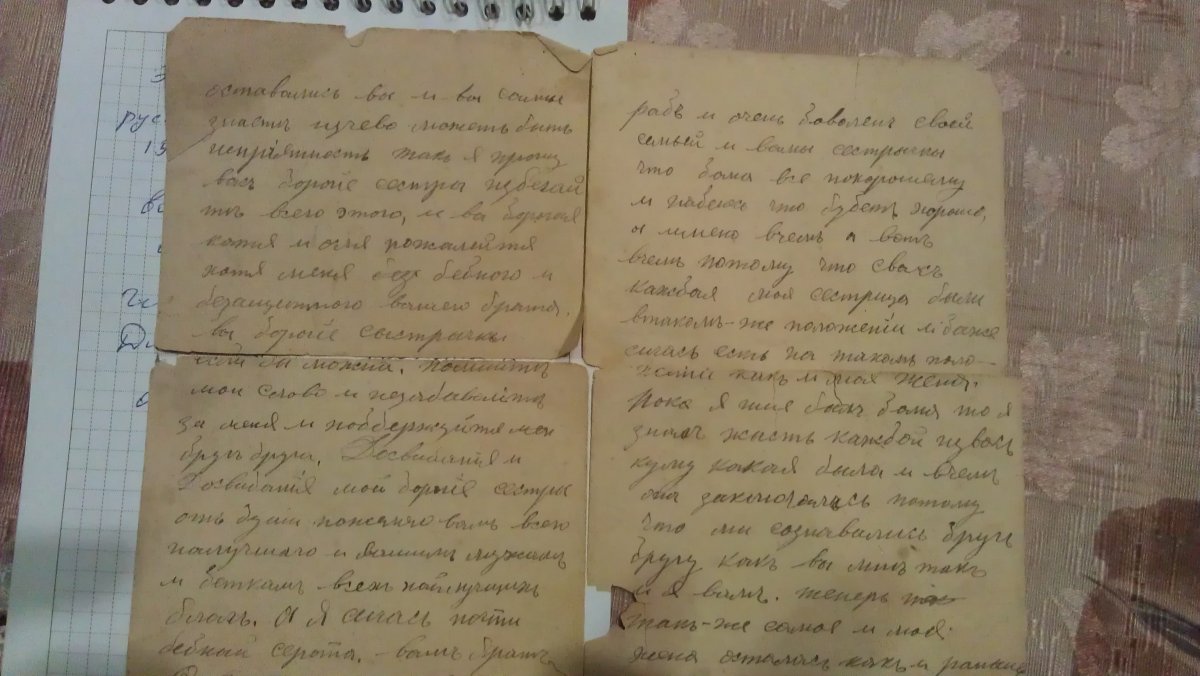 оставались вы и вы сами
знаетъ изчево можетъ быть
непріятность такъ я прошу
васъ дорогіе сестры избегай
тъ всего этого, и вы дорогая
катя и оля пожалейтя
хотя меня бедного и
безащитного вашего брата.
вы дорогіе сестрички
мои слово и незабавайтъ
за меня и подбержуйтя мои
другъ друга. Досвиданія и
Досвиданія мои дорогіе сестры
отъ души пожелаю вамъ всего
налучшаго и вашимъ мужьям
и деткамъ всехъ найлучшихъ
благъ. А я сичасъ почти
бедный серота. вамъ братъ
радъ и очень доволенъ своей
семьей и вами сестрички
что дома все похорошему
и надеюсь что будетъ хорошо,
а имено вчемъ а вотъ
вчемъ потому что свасъ
каждая моя сестрица были
втакомъ-же положеніи и даже
сичасъ есть на такомъ поло-
женіи какъ и моя жена.
Пока я жив былъ дома то я
знаю жисть каждой извасъ
кому какая была и вчемъ
она заключалась потому
что ми сознавались другъ
другу какъ вы мнъ такъ
и я вамъ. теперь
такъ-же самое и моя
жена осталась какъ и раньше
рус